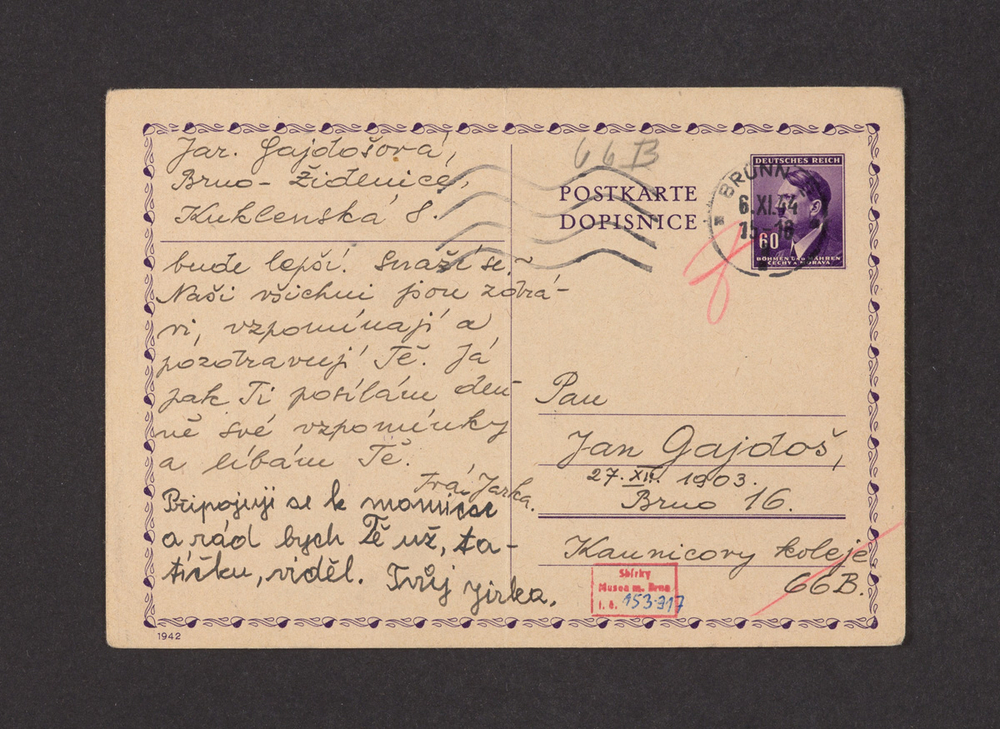 Jar. Gajdošová,
Brno - Židenice,
Kuklenská 8.
bude lepší. Snaží se, -
Naši všichni jsou zdrá-
vi, vzpomínají a
pozdravují Tě. Já
pak Ti posílám den-
ně své vzpomínky
a líbám Tě.
Tvá Jarka.
Připojuji se k mamince
a rád bych Tě už, ta-
tíčku, viděl. Tvůj Jirka.
1942
66B
POSTKARTE
DOPISNICE
BRÜNN
6.XI.44
15-18
DEUTSCHES REICH
60
BÖHMEN UND MÄHREN
ČECHY A MORAVA
Pan
Jan Gajdoš,
27. XII. 1903.
Brno 16.
Kaunicovy koleje
66B.
Sbírky
Musea m. Brna
i. č. 153.917